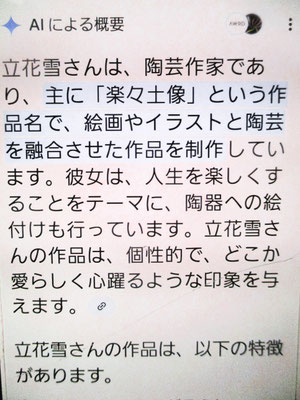 AI による概要
立花雪さんは、陶芸作家であ
り、主に「楽々土像」という作
品名で、絵画やイラストと陶芸
を融合させた作品を制作してい
ます。彼女は、人生を楽しくす
ることをテーマに、陶器への絵
付けも行っています。立花雪さ
んの作品は、個性的で、どこか
愛らしく心躍るような印象を与
えます。
立花雪さんの作品は、以下の特徴
があります。